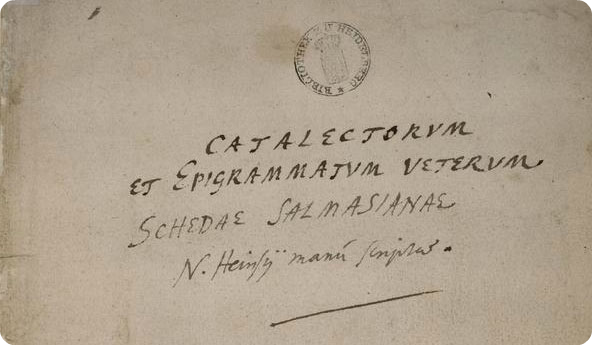 BIBLIOTHEK ZU HEIDELBERG *
CATALECTORVM
ET EPIGRAMMATVM VETERVM
SCHEDAE SALMASIANAE
N. Heinsÿ manû scriptae.